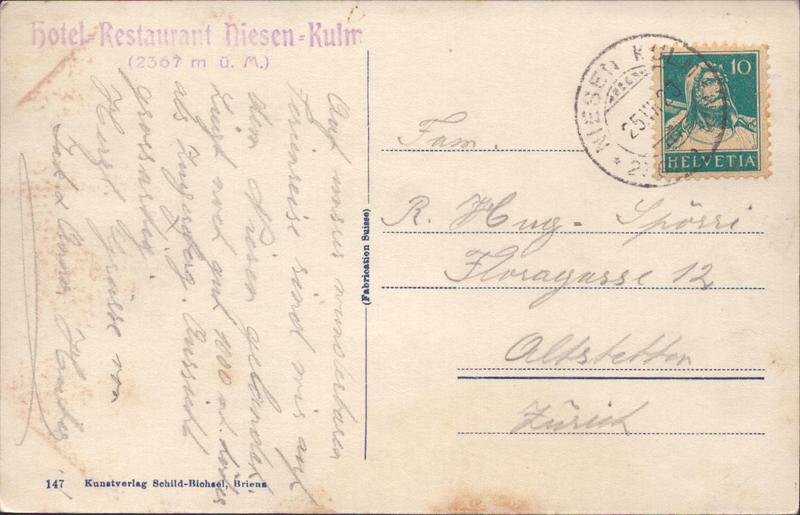 Hotel-Restaurant Niesen-Kulm
(2367 m ü. M.)
Auf unsrer wunderbaren
Ferienreise sind wir auf
dem Niesen gelandet.
liegt noch auf 1000 m. leider
als Aussicht
grossartig.
Herzl. Grüsse von
&
(Fabrication Suisse)
NIESEN KULM
25.VII.
10
HELVETIA
Fam.
R. Hug-Spörri
Floragasse 12
Altstetten
Zürich
147 Kunstverlag Schild-Bichsel, Brienz